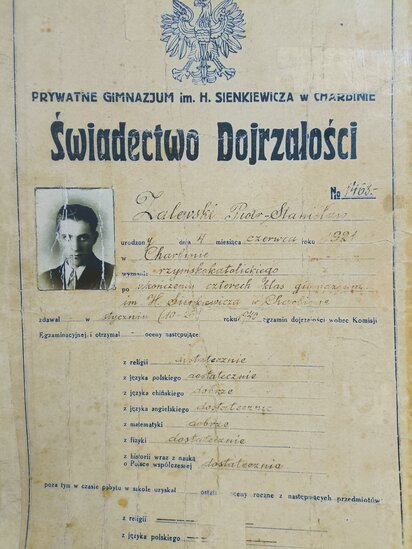 PRYWATNE GIMNAZJUM im. H. SIENKIEWICZA w CHARBINIE
Świadectwo Dojrzałości
No 1463.-
Zalewski Piotr-Stanisław
urodzony dnia 4 miesiąca czerwca roku 1921
w Charbinie
wyznania rzymskokatolickiego
po ukończeniu czterech klas gimnazjum
im. H. Sienkiewicza w Charbinie
zdawał w styczniu roku egzamin dojrzałości wobec Komisji
Egzaminacyjnej i otrzymał oceny następujące:
z religii dostatecznie
z języka polskiego dostatecznie
z języka chińskiego dobrze
z języka angielskiego dostatecznie
z matematyki dobrze
z fizyki dostatecznie
z historii wraz z nauką
o Polsce współczesnej dostatecznie
poza tym w czasie pobytu w szkole uzyskał ostatnie oceny roczne z następujących przedmiotów:
z religii
z języka polskiego